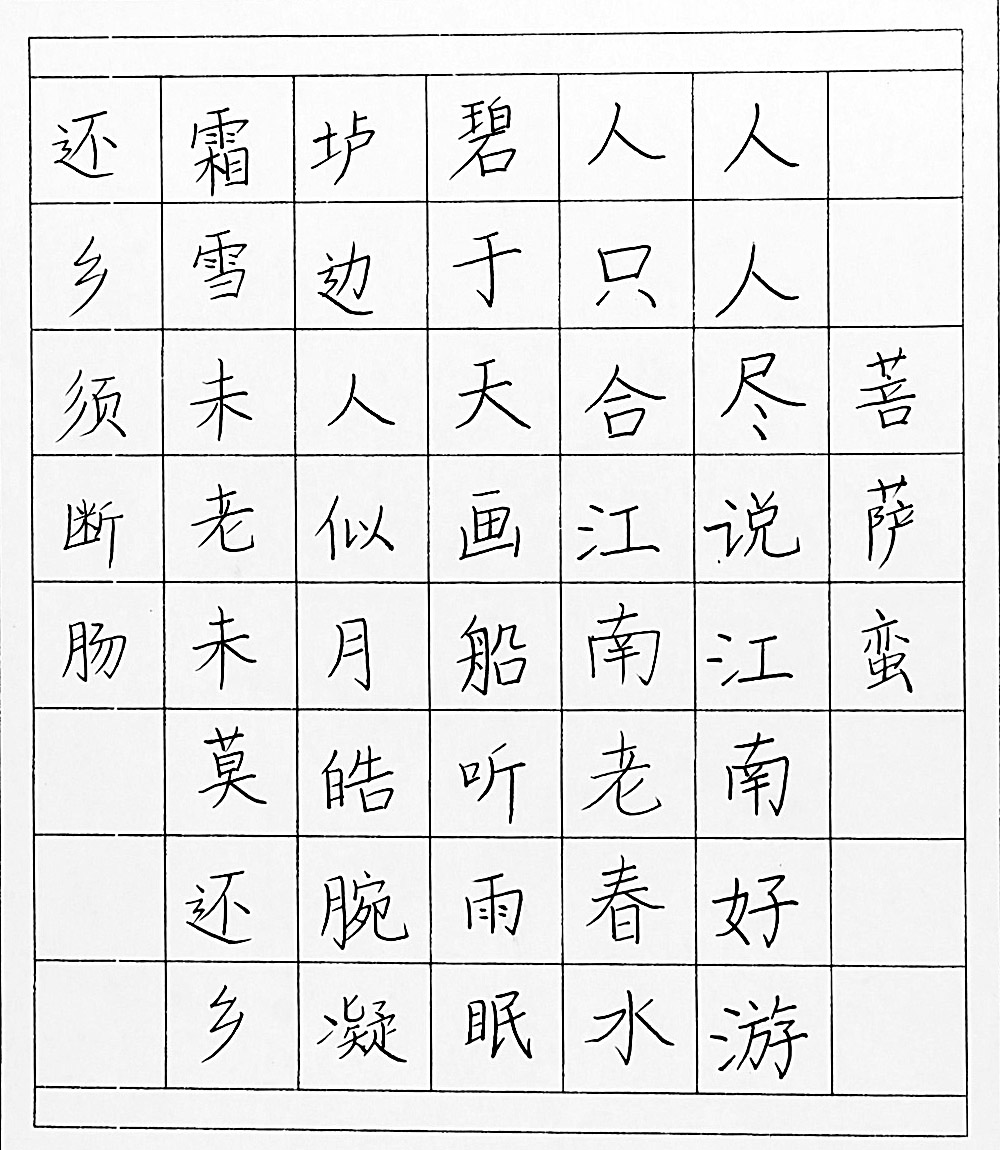 菩萨蛮
人人尽说江南好游
人只合江南老春水
碧于天画船听雨眠
垆边人似月皓腕凝
霜雪未老未莫还乡
还乡须断肠